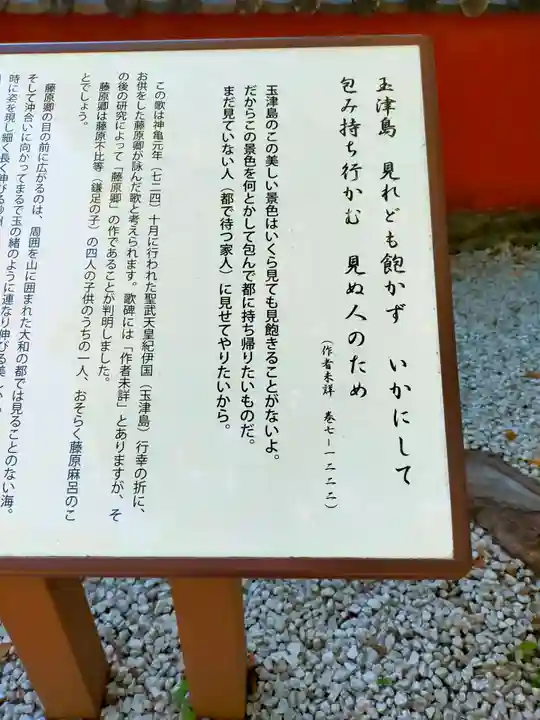 玉津島　見れども飽かず　いかにして
包み持ち行かむ　見ぬ人のため
（作者未詳　巻七ー一二二二）
玉津島のこの美しい景色はいくら見ても見飽きることがないよ。
だからこの景色を何とかして包んで都に持ち帰りたいものだ。
まだ見ていない人（都で待つ家人）に見せてやりたいから。
この歌は神亀元年（七二四）十月に行われた聖武天皇紀伊国（玉津島）行幸の折に、
お供をした藤原卿が詠んだ歌と考えられます。歌碑には「作者未詳」とありますが、そ
の後の研究によって「藤原卿」の作であることが判明しました。
藤原卿は藤原不比等（鎌足の子）の四人の子供のうちの一人、おそらく藤原麻呂のこ
とでしょう。
藤原卿の目の前に広がるのは、周囲を山に囲まれた大和の都では見ることのない海。
そして沖合いに向かってまるで玉の緒のように連なり伸びる美しい
時に姿を現し細く長く伸びる